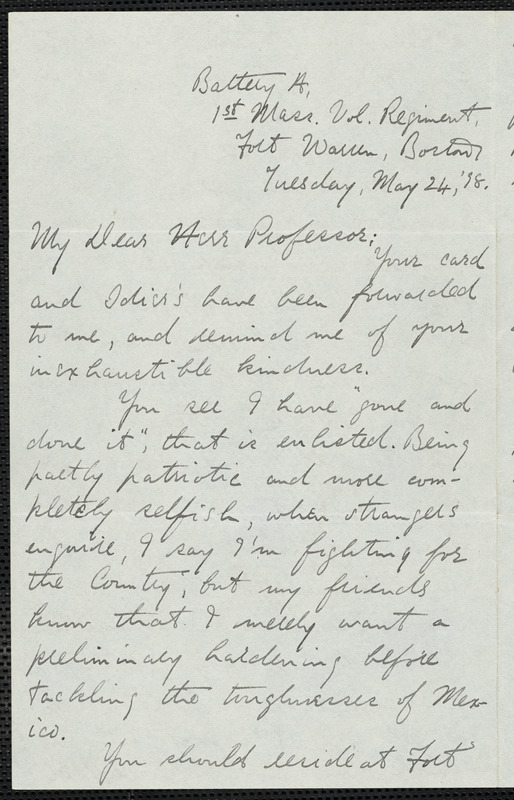 Battery A,
1st Mass. Vol. Regiment,
Fort Warren, Boston
Tuesday, May 24, '98.
My Dear Herr Professor;
Your card
and Idler's have been forwarded
to me, and remind me of your
inexhaustible kindness.
You see I have "gone and
done it"; that is enlisted. Being
partly patriotic and more com-
pletely selfish, when strangers
enquire, I say I'm fighting for
the Country; but my friends
know that I merely want a
preliminary hardening before
tackling the toughnesses of Mex-
ico.
You should reside at Fort